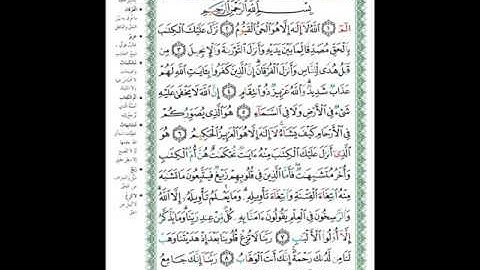 بِسْمِ اللَّهِ الرَّحْمَٰنِ الرَّحِيمِ
الٓمٓ ۝١ اللَّهُ لَا إِلَٰهَ إِلَّا هُوَ الْحَيُّ الْقَيُّومُ ۝٢ نَزَّلَ عَلَيْكَ الْكِتَٰبَ
بِالْحَقِّ مُصَدِّقًا لِّمَا بَيْنَ يَدَيْهِ وَأَنزَلَ التَّوْرَىٰةَ وَالْإِنجِيلَ ۝٣ مِن
قَبْلُ هُدًى لِّلنَّاسِ وَأَنزَلَ الْفُرْقَانَ ۗ إِنَّ الَّذِينَ كَفَرُوا بِـَٔايَٰتِ اللَّهِ لَهُمْ
عَذَابٌ شَدِيدٌ ۗ وَاللَّهُ عَزِيزٌ ذُو انتِقَامٍ ۝٤ إِنَّ اللَّهَ لَا يَخْفَىٰ عَلَيْهِ
شَىْءٌ فِي الْأَرْضِ وَلَا فِي السَّمَاءِ ۝٥ هُوَ الَّذِي يُصَوِّرُكُمْ
فِي الْأَرْحَامِ كَيْفَ يَشَاءُ ۚ لَا إِلَٰهَ إِلَّا هُوَ الْعَزِيزُ الْحَكِيمُ ۝٦ هُوَ
الَّذِي أَنزَلَ عَلَيْكَ الْكِتَٰبَ مِنْهُ ءَايَٰتٌ مُّحْكَمَٰتٌ هُنَّ أُمُّ الْكِتَٰبِ
وَأُخَرُ مُتَشَٰبِهَٰتٌ ۖ فَأَمَّا الَّذِينَ فِي قُلُوبِهِمْ زَيْغٌ فَيَتَّبِعُونَ مَا تَشَٰبَهَ
مِنْهُ ابْتِغَاءَ الْفِتْنَةِ وَابْتِغَاءَ تَأْوِيلِهِ ۗ وَمَا يَعْلَمُ تَأْوِيلَهُ إِلَّا اللَّهُ ۗ
وَالرَّٰسِخُونَ فِي الْعِلْمِ يَقُولُونَ ءَامَنَّا بِهِ كُلٌّ مِّنْ عِندِ رَبِّنَا ۗ وَمَا يَذَّكَّرُ
إِلَّا أُولُوا الْأَلْبَٰبِ ۝٧ رَبَّنَا لَا تُزِغْ قُلُوبَنَا بَعْدَ إِذْ هَدَيْتَنَا وَهَبْ
لَنَا مِن لَّدُنكَ رَحْمَةً ۚ إِنَّكَ أَنتَ الْوَهَّابُ ۝٨ رَبَّنَا إِنَّكَ جَامِعُ